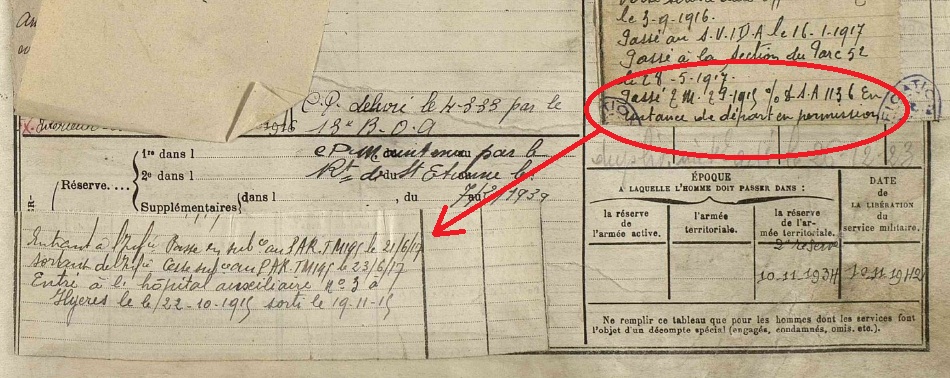 le 3-9-1916.
Passé au S.V.I.D.A le 16-1-1917
Passé à la section du Parc 52
le 28-5-1917.
Passé 2 M. 29-1915 % D.S.A 1136 En
instance de départ en permission
C.P. délivré le 4-3-33 par le
13e B.O.A
1916
1re dans l
2e dans l
Réserve....
Supplémentaires
(dans l
, du
au
CP Maintenu par le
Rt de St Etienne le
1939
23
ÉPOQUE
A LAQUELLE L'HOMME DOIT PASSER DANS :
DATE
DE LA LIBÉRATION
du
service militaire.
la réserve
de
l'armée active.
l'armée
territoriale.
la réserve
de l'ar-
mée territoriale.
2e réserve
10.11.1934
10.11.1942
Entrant à l'Infie Passe en subce au PAR.TM195 le 21/6/17
sortant de l'Infie Cesse subce au PAR.TM195 le 23/6/17
Entré à l' hôpital auxiliaire no 3 à
Hyeres le le 22-10-1915 sorti le 19-11-15
Ne remplir ce tableau que pour les hommes dont les services font
l'objet d'un décompte spécial (engagés, condamnés, omis. etc.).